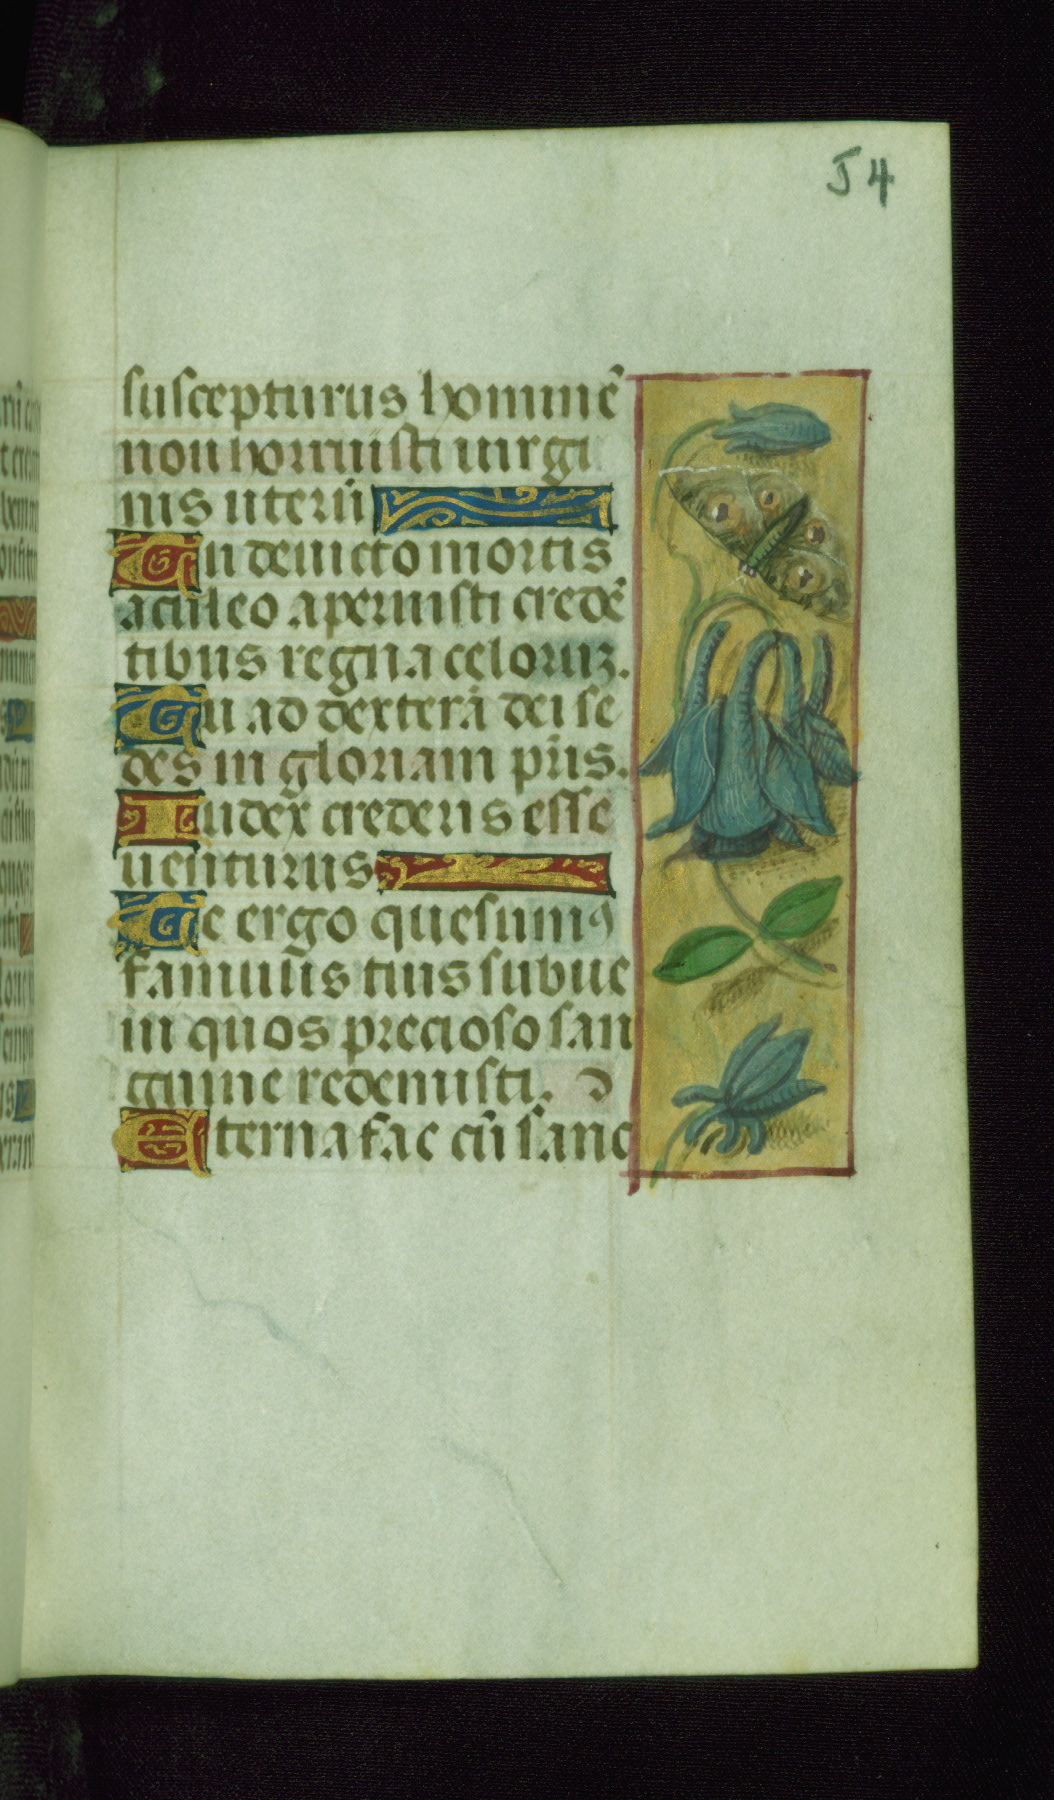 54
suscepturus hominē
non horruisti uirgi
nis uterū
Tu deuicto mortis
aculeo aperuisti credē
tibus regna celoruꝫ.
Tu ad dexterā dei se
des in gloriam pr̄is.
Iudex crederis esse
uenturus
Te ergo quesumꝰ
famulis tuis subue
ni quos precioso san
guine redemisti. ꝺ
Eterna fac cū sanc